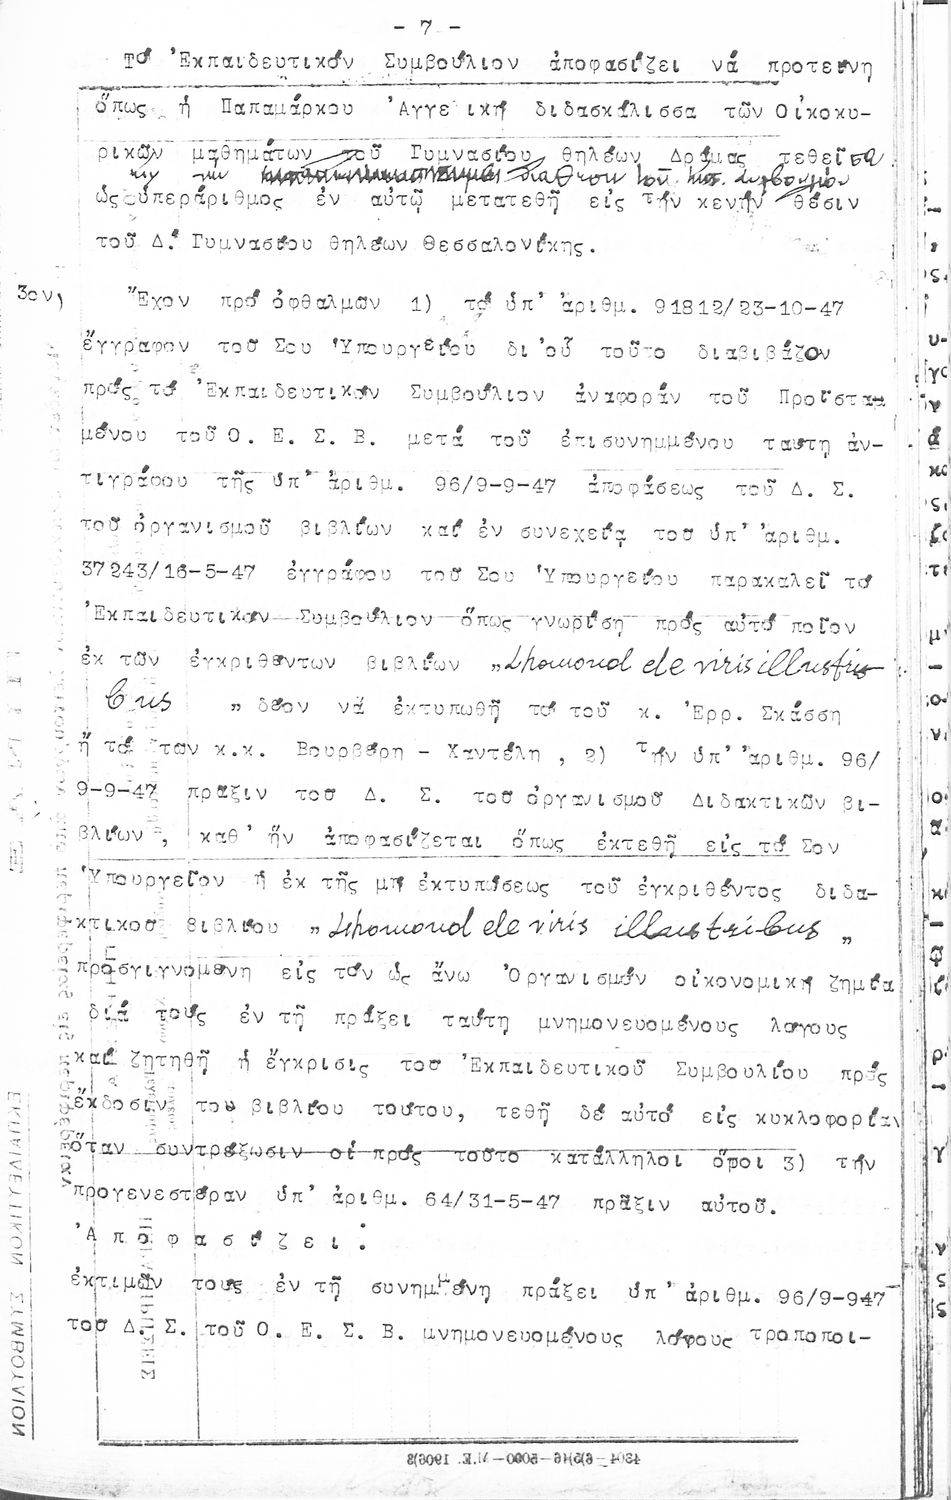 - 7 -
Τό Ἐκπαιδευτικόν Συμβούλιον ἀποφασίζει νά προτείνη
ὅπως ἡ Παπαμάρκου Ἀγγελική διδασκάλισσα τῶν Οἰκοκυ-
ρικῶν μαθημάτων τοῦ Γυμνασίου θηλέων Δράμας τεθεῖσα
ὡς ὑπεράριθμος ἐν αὐτῷ μετατεθῆ εἰς τήν κενήν θέσιν
τοῦ Δ. Γυμνασίου θηλέων Θεσσαλονίκης.
3ον) Ἔχον πρό ὀφθαλμῶν 1) τό ὑπ' ἀριθμ. 91812/23-10-47
ἔγγραφον τοῦ Σου Ὑπουργείου δι'οὗ τοῦτο διαβιβάζον
πρός τό Ἐκπαιδευτικόν Συμβούλιον ἀναφοράν τοῦ Προϊστα-
μένου τοῦ Ο. Ε. Σ. Β. μετά τοῦ ἐπισυνημμένου ταύτη ἀν-
τιγράφου τῆς ὑπ' ἀριθμ. 96/9-9-47 ἀποφάσεως τοῦ Δ. Σ.
τοῦ ὀργανισμοῦ βιβλίων καί ἐν συνεχεία τοῦ ὑπ' ἀριθμ.
37243/16-5-47 ἐγγράφου τοῦ Σου Ὑπουργείου παρακαλεῖ τό
Ἐκπαιδευτικόν Συμβούλιον ὅπως γνωρίση πρός αὐτό ποῖον
ἐκ τῶν ἐγκριθέντων βιβλίων „Lhomond de viris illustri
bus „ δέον νά ἐκτυπωθῆ τό τοῦ κ. Ἐρρ. Σκάσση
ἤ τό τῶν κ.κ. Βουρβέρη - Χαντέλη , 2) Τήν ὑπ' ἀριθμ. 96/
9-9-47 πρᾶξιν τοῦ Δ. Σ. τοῦ ὀργανισμοῦ Διδακτικῶν βι-
βλίων , καθ' ἥν ἀποφασίζεται ὅπως ἐκτεθῆ εἰς τό Σον
Ὑπουργεῖον ἡ ἐκ τῆς μή ἐκτυπώσεως τοῦ ἐγκριθέντος διδα-
κτικοῦ βιβλίου „ Lhomond de viris illustribus „
προσγιγνομένη εἰς τόν ὡς ἄνω Ὀργανισμόν οἰκονομική ζημία
διά τούς ἐν τῆ πράξει ταύτη μνημονευομένους λόγους
καί ζητηθῆ ἡ ἔγκρισις τοῦ Ἐκπαιδευτικοῦ Συμβουλίου πρός
ἔκδοσιν του βιβλίου τούτου, τεθῆ δέ αὐτό εἰς κυκλοφορίαν
ὅταν συντρέξωσιν οἱ πρός τοῦτο κατάλληλοι ὅροι 3) τήν
προγενεστέραν ὑπ' ἀριθμ. 64/31-5-47 πρᾶξιν αὐτοῦ.
Ἀ π ο φ α σ ί ζ ε ι :
ἐκτιμῶν τούς ἐν τῆ συνημμένη πράξει ὑπ' ἀριθμ. 96/9-947
τοῦ Δ. Σ. τοῦ Ο. Ε. Σ. Β. μνημονευομένους λόγους τροποποι-
ΕΚΠΑΙΔΕΥΤΙΚΟΝ ΣΥΜΒΟΥΛΙΟΝ